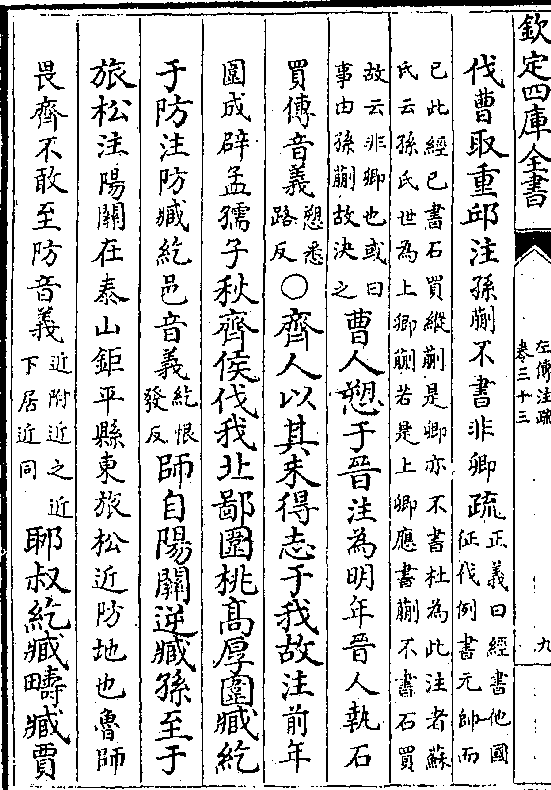 欽定四庫全書
左傳注疏
卷三十三
九
伐曹取重邱注孫蒯不書非卿疏正義曰經書他國征伐例書元帥而
已此經已書石買縱蒯是卿亦不書杜為此注者蘇
氏云孫氏世為上卿蒯若是上卿應書蒯不書石買
故云非卿也或曰事由孫蒯故決之曹人愬于晉注為明年晉人執石
買傳音義愬悉路反○齊人以其未得志于我故注前年
圍成辟孟孺子秋齊侯伐我北鄙圍桃高厚圍臧紇
于防注防臧紇邑音義紇恨發反師自陽關逆臧孫至于
旅松注陽關在泰山鉅平縣東旅松近防地也魯師
畏齊不敢至防音義近附近之近下居近同郰叔紇臧疇臧賈